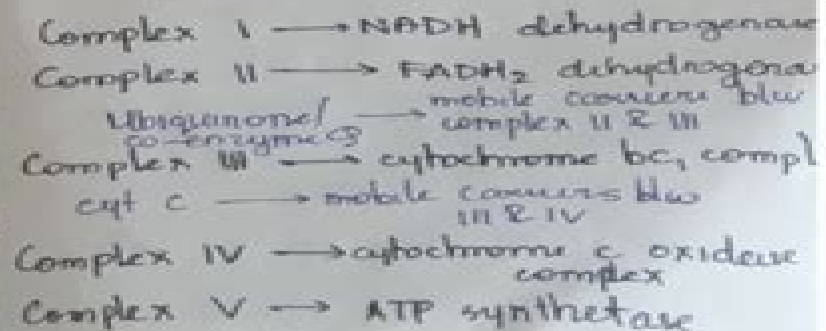 Complex I → NADH dehydrogenase
Complex II → FADH₂ dehydrogena
Ubiquanone/ co-enzyme Q → mobile carriers b/w complex II & III
Complex III → cytochrome bc₁ compl
cyt c → mobile carriers b/w III & IV
Complex IV → cytochrome c oxidase complex
Complex V → ATP synthetase